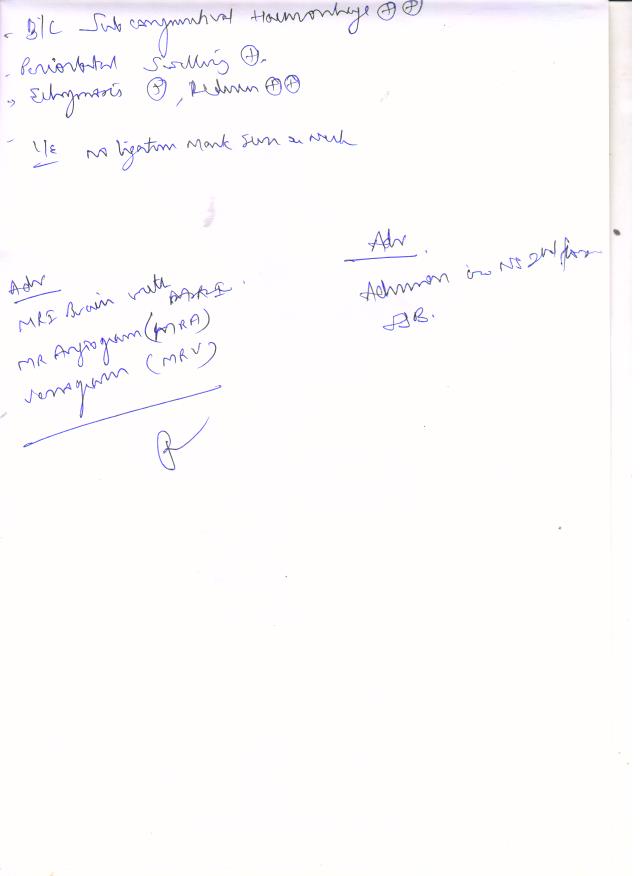 - B/L Sub conjunctival Haemorrhage ⊕ ⊕
- Periorbital Swelling ⊕.
Echymosis ⊕, Redness ⊕⊕
- L/E no ligation mark seen in neck
Adv
MRI Brain with
MR Angiogram (MRA)
Venogram (MRV)
Adv.
Admission in NS